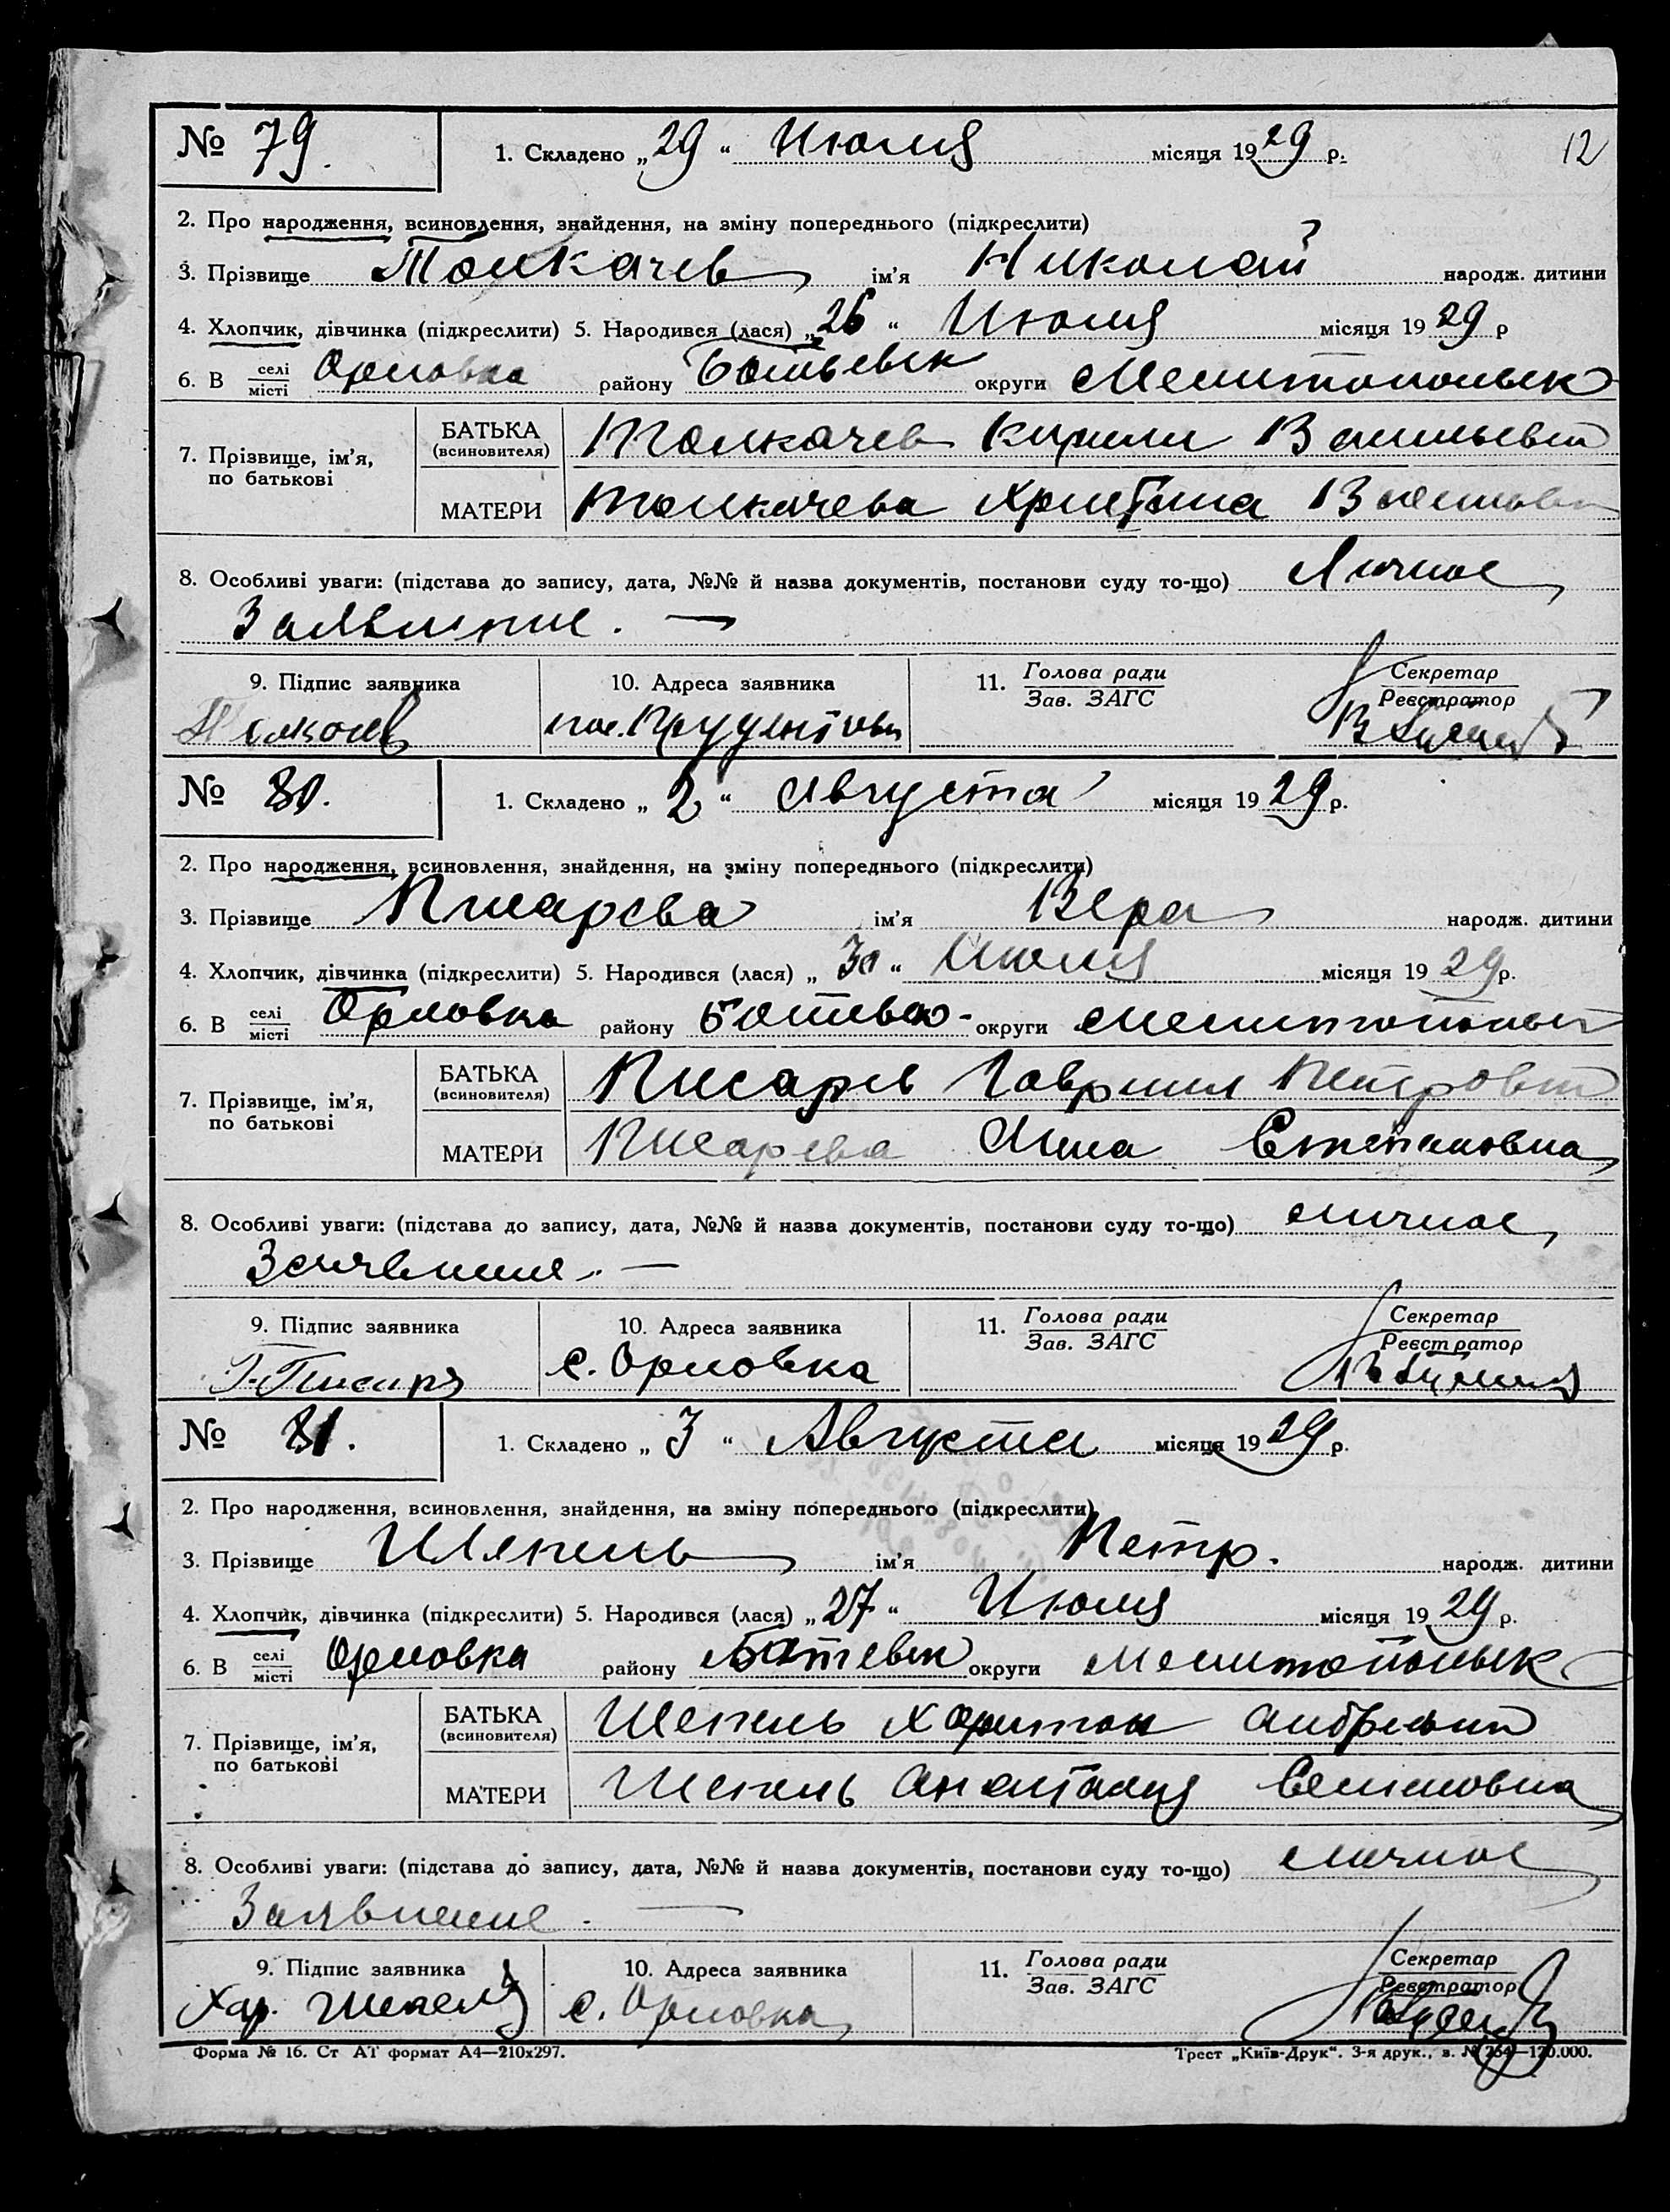 № 79. 1. Складено „29“ Июля місяця 1929 р. 12
2. Про народження, всиновлення, знайдення, на зміну попереднього (підкреслити)
3. Прізвище Толкачев ім'я Николай народж. дитини
4. Хлопчик, дівчинка (підкреслити) 5. Народився (лася) „26“ Июля місяця 1929 р
6. В селі місті Орловка району Ботьевск округи Мелитопольск
7. Прізвище, ім'я, по батькові
БАТЬКА (всиновителя) Толкачев Кирилл Васильевич
МАТЕРИ Толкачева Христина
8. Особливі уваги: (підстава до запису, дата, №№ й назва документів, постанови суду то-що) Личное
Заявление. —
9. Підпис заявника 10. Адреса заявника 11. Голова ради Зав. ЗАГС Секретар Реєстратор
№ 80. 1. Складено „2“ Августа місяця 1929 р.
2. Про народження, всиновлення, знайдення, на зміну попереднього (підкреслити)
3. Прізвище Писарева ім'я Вера народж. дитини
4. Хлопчик, дівчинка (підкреслити) 5. Народився (лася) „30“ Июля місяця 1929 р.
6. В селі місті Орловка району Ботьевск округи Мелитопольск
7. Прізвище, ім'я, по батькові
БАТЬКА (всиновителя) Писарев Гавриил Петрович
МАТЕРИ Писарева Степановна
8. Особливі уваги: (підстава до запису, дата, №№ й назва документів, постанови суду то-що) личное
Заявление. —
9. Підпис заявника 10. Адреса заявника 11. Голова ради Зав. ЗАГС Секретар Реєстратор
Г. Писарь с. Орловка
№ 81. 1. Складено „3“ Августа місяця 1929 р.
2. Про народження, всиновлення, знайдення, на зміну попереднього (підкреслити)
3. Прізвище Шепель ім'я Петр. народж. дитини
4. Хлопчик, дівчинка (підкреслити) 5. Народився (лася) „27“ Июля місяця 1929 р.
6. В селі місті Орловка району Ботевск округи Мелитопольск
7. Прізвище, ім'я, по батькові
БАТЬКА (всиновителя) Шепель Харитон Андреевич
МАТЕРИ Шепель Анастасия Семеновна
8. Особливі уваги: (підстава до запису, дата, №№ й назва документів, постанови суду то-що) личное
Заявление. —
9. Підпис заявника 10. Адреса заявника 11. Голова ради Зав. ЗАГС Секретар Реєстратор
Хар. Шепель с. Орловка
Форма № 16. Ст АТ формат А4—210х297. Трест „Київ-Друк“. 3-я друк., з. № 264—120.000.